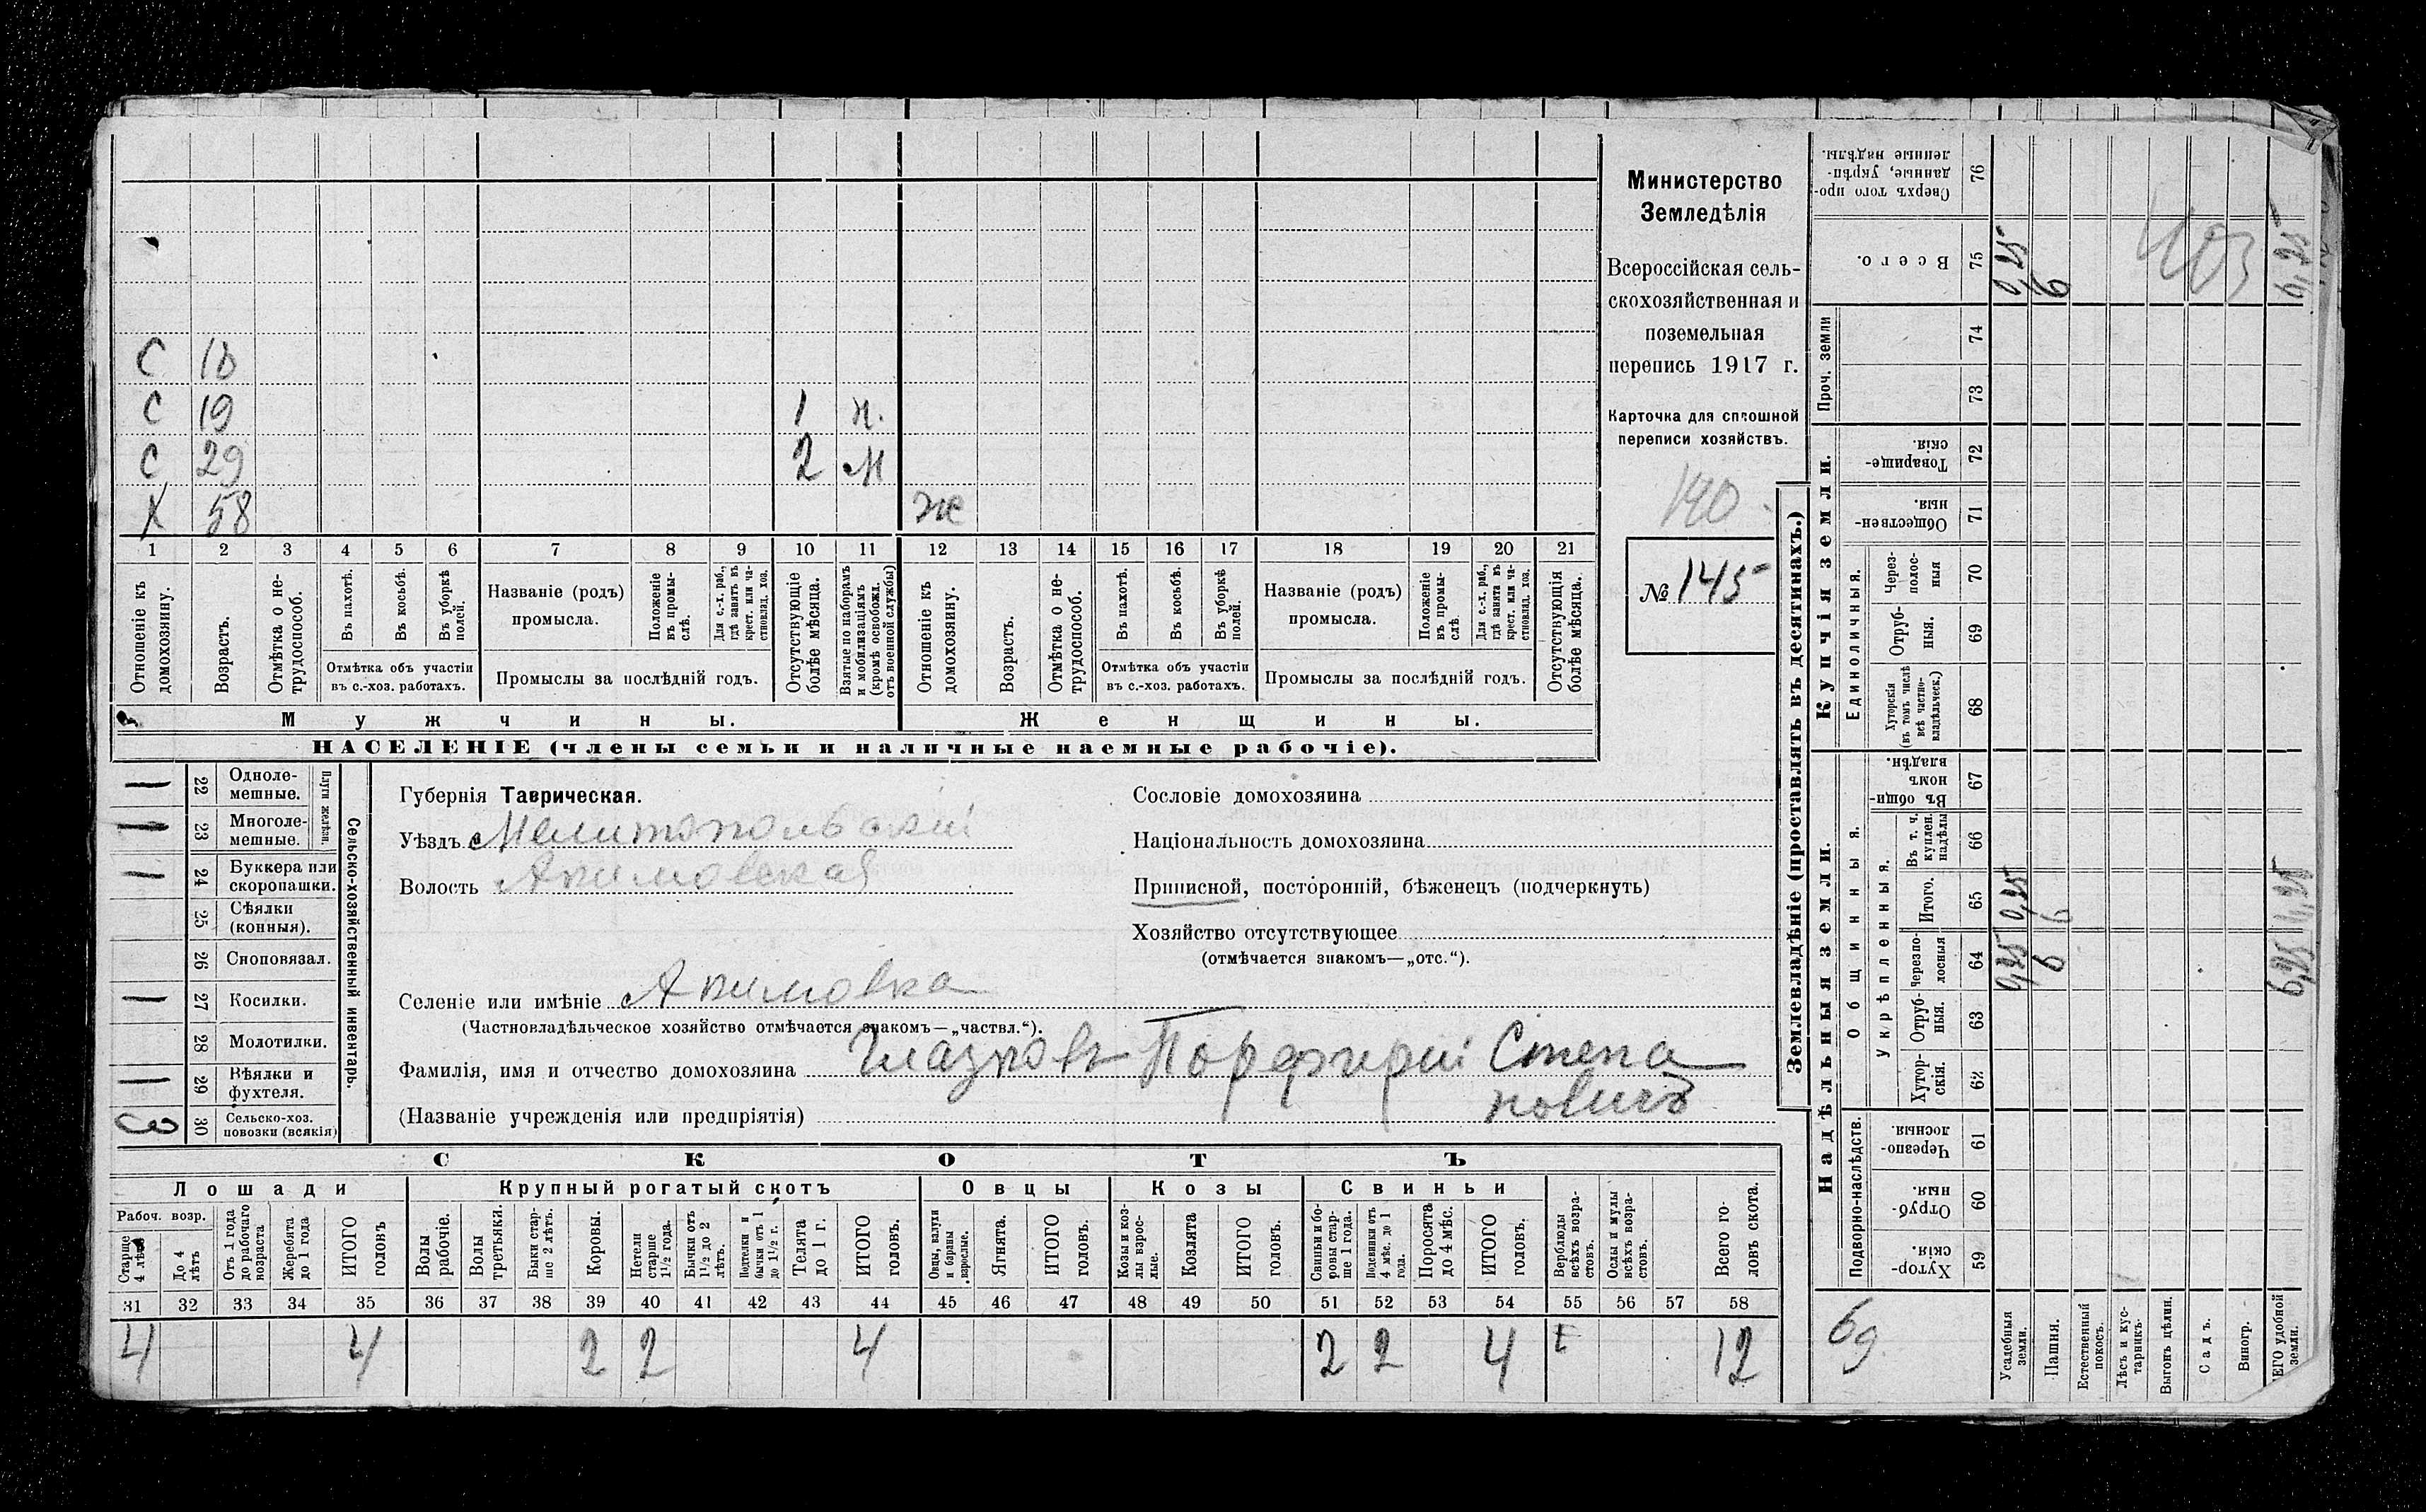 Министерство
Земледѣлія
Всероссійская сель-
скохозяйственная и
поземельная
перепись 1917 г.
Карточка для сплошной
переписи хозяйствъ.
190
№ 145
С 18
С 19 1 н.
С 29 2 М
Х 58 же
1 2 3 4 5 6 7 8 9 10 11 12 13 14 15 16 17 18 19 20 21
Отношеніе къ домохозяину.
Возрастъ.
Отмѣтка о не-трудоспособ.
Въ пахотѣ.
Въ косьбѣ.
Въ уборкѣ полей.
Отмѣтка объ участіи
въ с.-хоз. работахъ.
Названіе (родъ)
промысла.
Положеніе въ промы-слѣ.
Для с.-х. раб., гдѣ занятъ въ крест. или ча-стновлад. хоз.
Промыслы за послѣдній годъ.
Отсутствующіе болѣе мѣсяца.
Взятые по наборамъ и мобилизаціямъ (кромѣ освобожд. отъ военной службы)
Отношеніе къ домохозяину.
Возрастъ.
Отмѣтка о не-трудоспособ.
Въ пахотѣ.
Въ косьбѣ.
Въ уборкѣ полей.
Отмѣтка объ участіи
въ с.-хоз. работахъ.
Названіе (родъ)
промысла.
Положеніе въ промы-слѣ.
Для с.-х. раб., гдѣ занята въ крест. или ча-стновлад. хоз.
Промыслы за послѣдній годъ.
Отсутствующія болѣе мѣсяца.
Мужчины. Женщины.
НАСЕЛЕНІЕ (члены семьи и наличные наемные рабочіе).
Сельско-хозяйственный инвентарь.
Плуги желѣзн.
1 22 Одноле-мешные.
1 23 Многоле-мешные.
1 24 Буккера или скоропашки.
25 Сѣялки (конныя).
26 Сноповязал.
1 27 Косилки.
28 Молотилки.
1 29 Вѣялки и фухтеля.
3 30 Сельско-хоз. повозки (всякія)
Губернія Таврическая.
Уѣздъ Мелитопольскій
Волость Акимовская
Селеніе или имѣніе Акимовка
(Частновладѣльческое хозяйство отмѣчается знакомъ—„частвл.“).
Фамилія, имя и отчество домохозяина Глазковъ Порфирій Степа
новичъ
(Названіе учрежденія или предпріятія)
Сословіе домохозяина
Національность домохозяина
Приписной, посторонній, бѣженецъ (подчеркнуть)
Хозяйство отсутствующее
(отмѣчается знакомъ—„отс.“).
СКОТЪ
Лошади Крупный рогатый скотъ Овцы Козы Свиньи
Рабоч. возр.
Старше 4 лѣтъ
До 4 лѣтъ
Отъ 1 года до рабочаго возраста
Жеребята до 1 года
ИТОГО головъ
Волы рабочіе.
Волы третьяки.
Быки стар-ше 2 лѣтъ.
Коровы.
Нетели старше 1½ года.
Бычки отъ 1½ до 2 лѣтъ.
Подтелки и бычки отъ 1 до 1½ г.
Телята до 1 г.
ИТОГО головъ.
Овцы, валухи и бараны взрослые.
Ягнята.
ИТОГО головъ.
Козы и коз-лы взрос-лые.
Козлята
ИТОГО головъ.
Свиньи и бо-ровы стар-ше 1 года.
Подсвинки отъ 4 мѣс. до 1 года.
Поросята до 4 мѣс.
ИТОГО головъ.
Верблюды всѣхъ возра-стовъ.
Ослы и мулы всѣхъ возра-стовъ.
Всего го-ловъ скота.
31 32 33 34 35 36 37 38 39 40 41 42 43 44 45 46 47 48 49 50 51 52 53 54 55 56 57 58
4 4 2 2 4 2 2 4 12
Землевладѣніе (проставлять въ десятинахъ.)
Надѣльныя земли. Купчія земли. Проч. земли
Подворно-наслѣдств.
Общинныя.
Укрѣпленныя.
Единоличныя.
76 Сверхъ того про-данные, укрѣп-ленные надѣлы.
75 Всего. 0,25 6 6,25
74
73
72 Товарище-скія.
71 Обществен-ныя
70 Через-полос-ныя
69 Отруб-ныя.
68 Хуторскія (въ томъ числѣ всѣ частно-владѣльческ.)
67 Въ общин-номъ владѣн.
66 Въ т. ч. куплен. надѣлы
65 Итого. 0,25 6
64 Черезпо-лосныя 0,25 6 6,25
63 Отруб-ныя.
62 Хутор-скія.
61 Черезпо-лосныя.
60 Отруб-ныя.
59 Хутор-скія.
403
69
Усадебныя земли.
Пашня.
Естественный покосъ.
Лѣсъ и кус-тарникъ.
Выгонъ цѣлин.
Садъ.
Виногр.
ЕГО удобной земли.